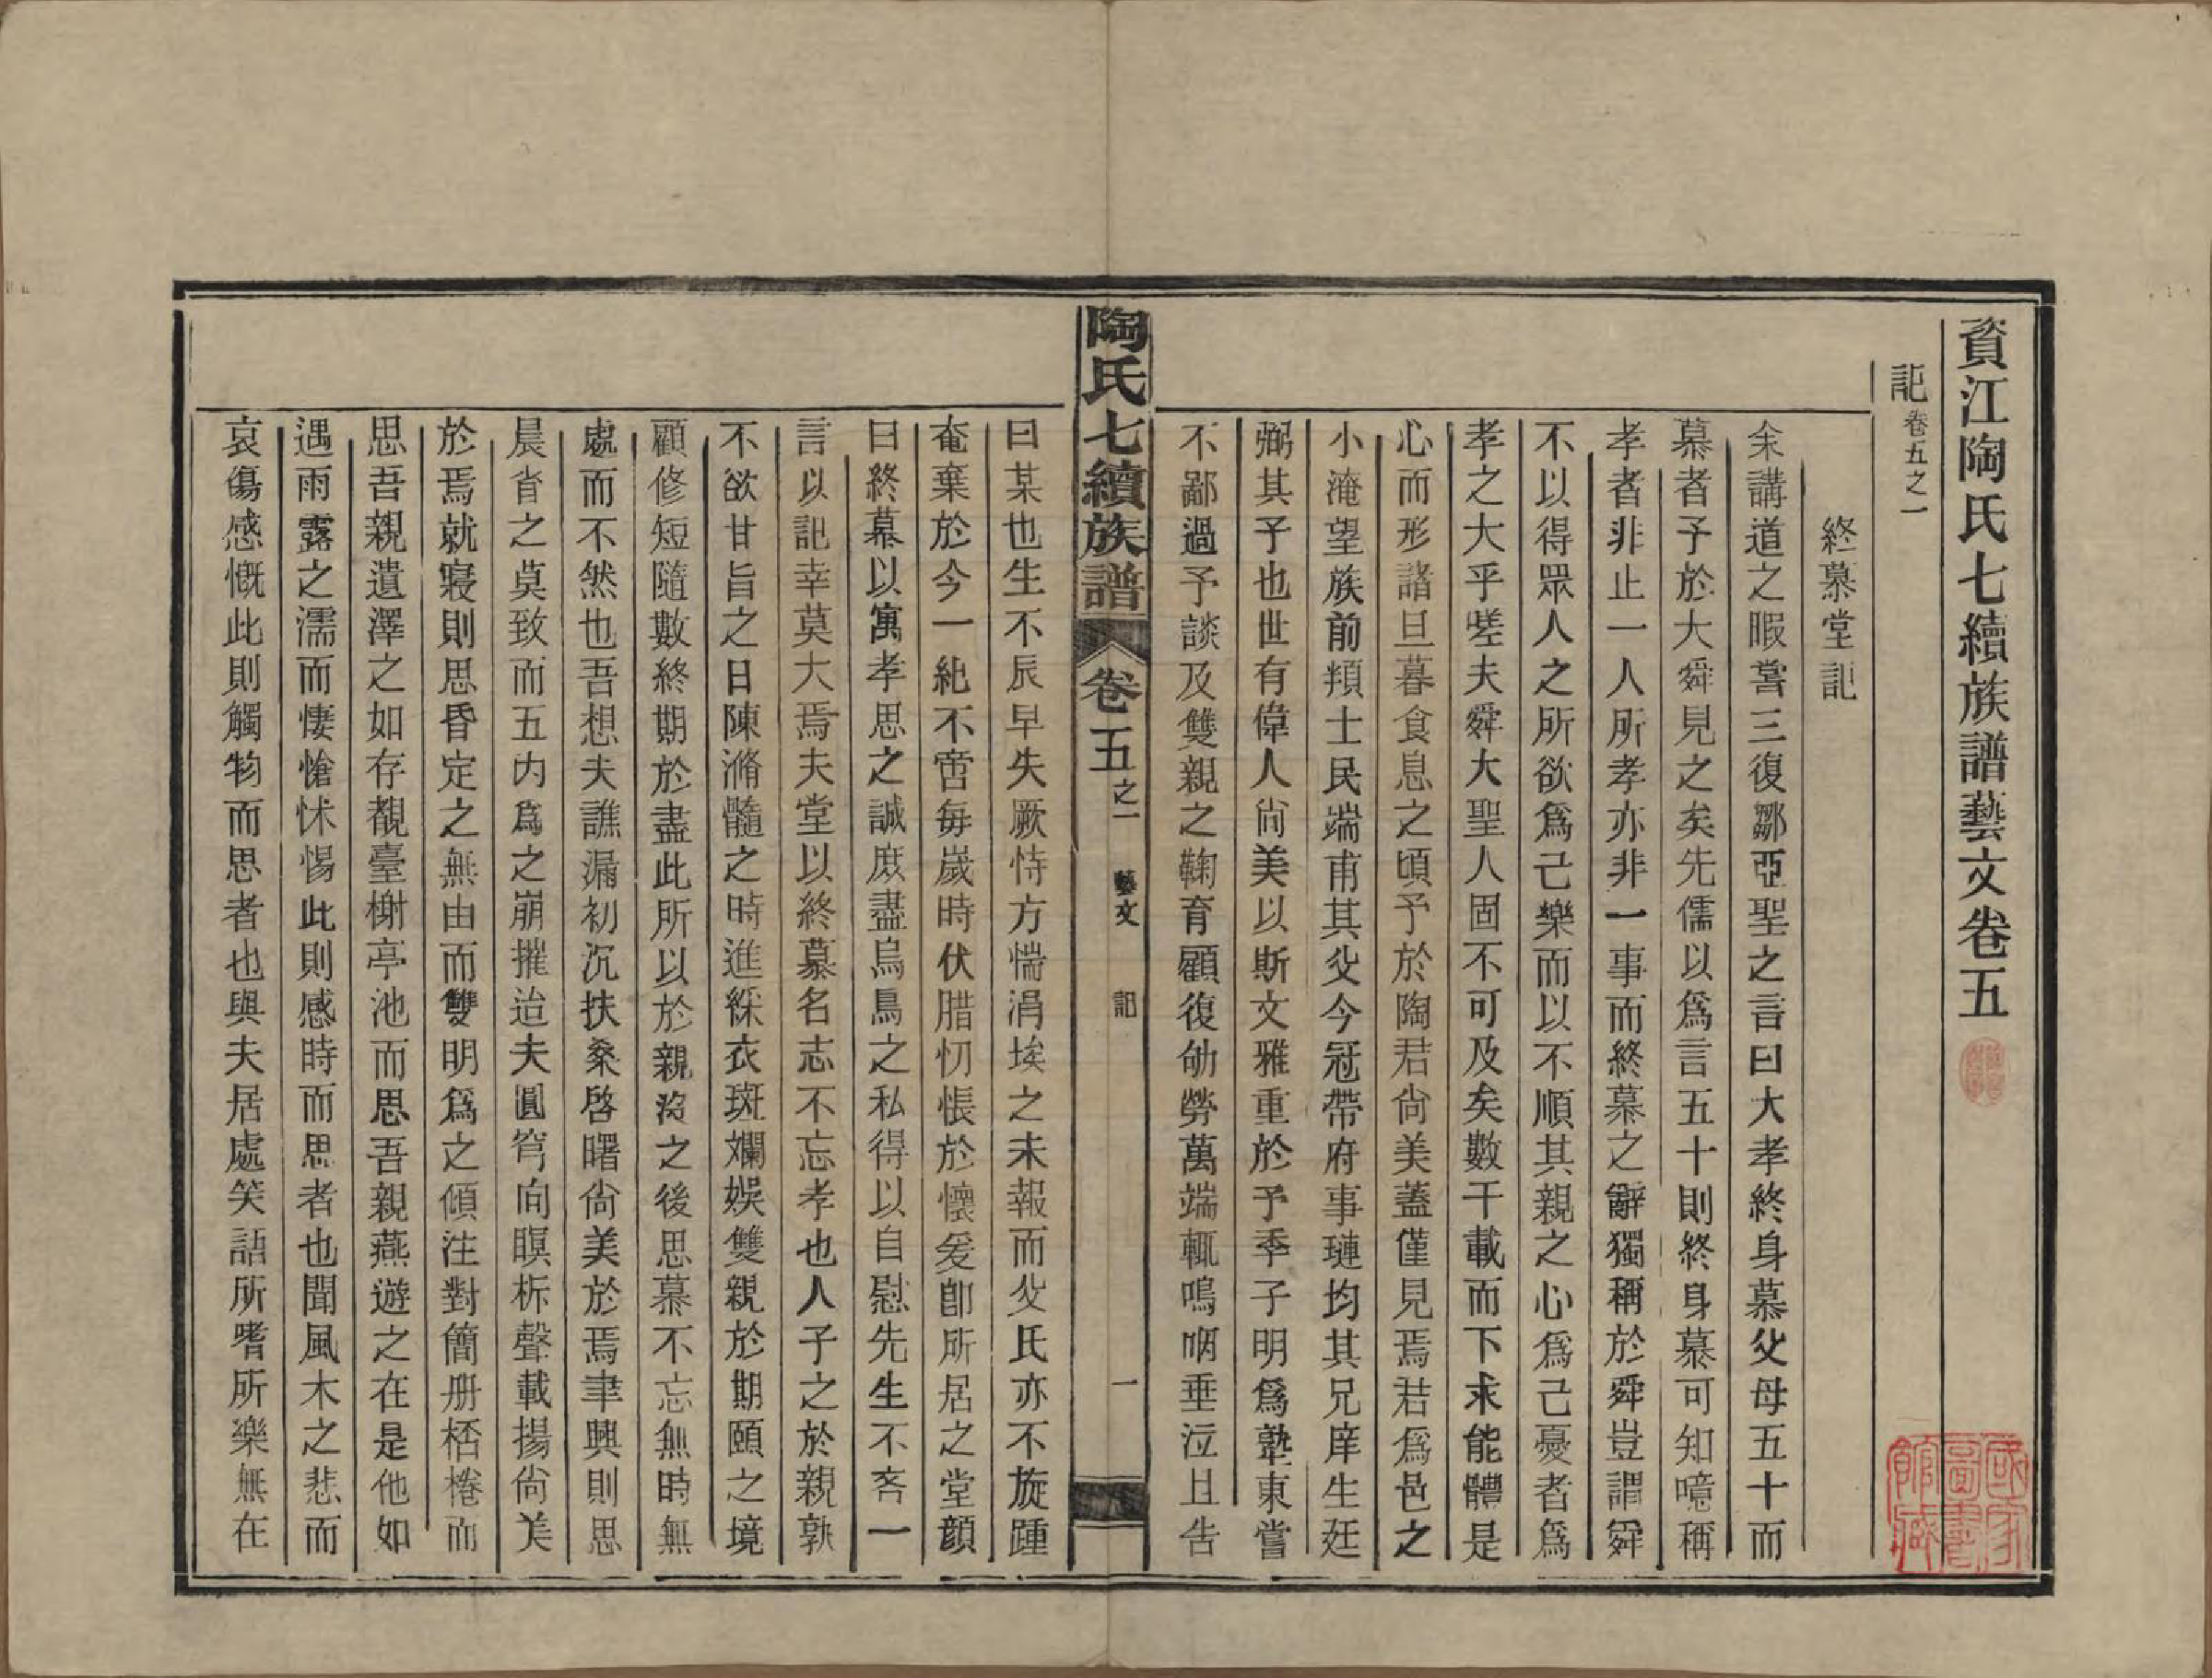 資江陶氏七續族譜藝文卷五
記卷五之一
終慕堂記
余講道之暇嘗三復鄒亞聖之言曰大孝終身慕父母五十而
慕者予於大舜見之矣先儒以爲言五十則終身慕可知噫稱
孝者非止一人所孝亦非一事而終慕之辭獨稱於舜豈謂舜
不以得眾人之所欲爲己樂而以不順其親之心爲己憂者爲
孝之大乎嗟夫舜大聖人固不可及矣數千載而下求能體是
心而形諸旦暮食息之頃予於陶君尙美蓋僅見焉君爲邑之
小淹望族前頖士民端甫其父今冠帶府事璉均其兄庠生廷
弼其子也世有偉人尙美以斯文雅重於予季子明爲塾東嘗
不鄙過予談及雙親之鞠育顧復劬勞萬端輒嗚咽垂泣且告
陶氏七續族譜 卷五之一 藝文 記 一
曰某也生不辰早失厥恃方惴涓埃之未報而父氏亦不旋踵
奄棄於今一紀不啻每歲時伏腊忉悵於懷爰卽所居之堂顔
曰終慕以寓孝思之誠庶盡烏鳥之私得以自慰先生不吝一
言以記幸莫大焉夫堂以終慕名志不忘孝也人子之於親孰
不欲甘旨之日陳滫髓之時進綵衣斑斕娛雙親於期頤之境
顧修短隨數終期於盡此所以於親沒之後思慕不忘無時無
處而不然也吾想夫譙漏初沉扶桑啓曙尙美於焉聿興則思
晨省之莫致而五內爲之崩摧迨夫圓穹向瞑柝聲載揚尙美
於焉就寢則思昏定之無由而雙明爲之傾注對簡册桮棬而
思吾親遺澤之如存覩臺榭亭池而思吾親燕遊之在是他如
遇雨露之濡而悽愴怵惕此則感時而思者也聞風木之悲而
哀傷感慨此則觸物而思者也與夫居處笑語所嗜所樂無在
國家圖書館藏